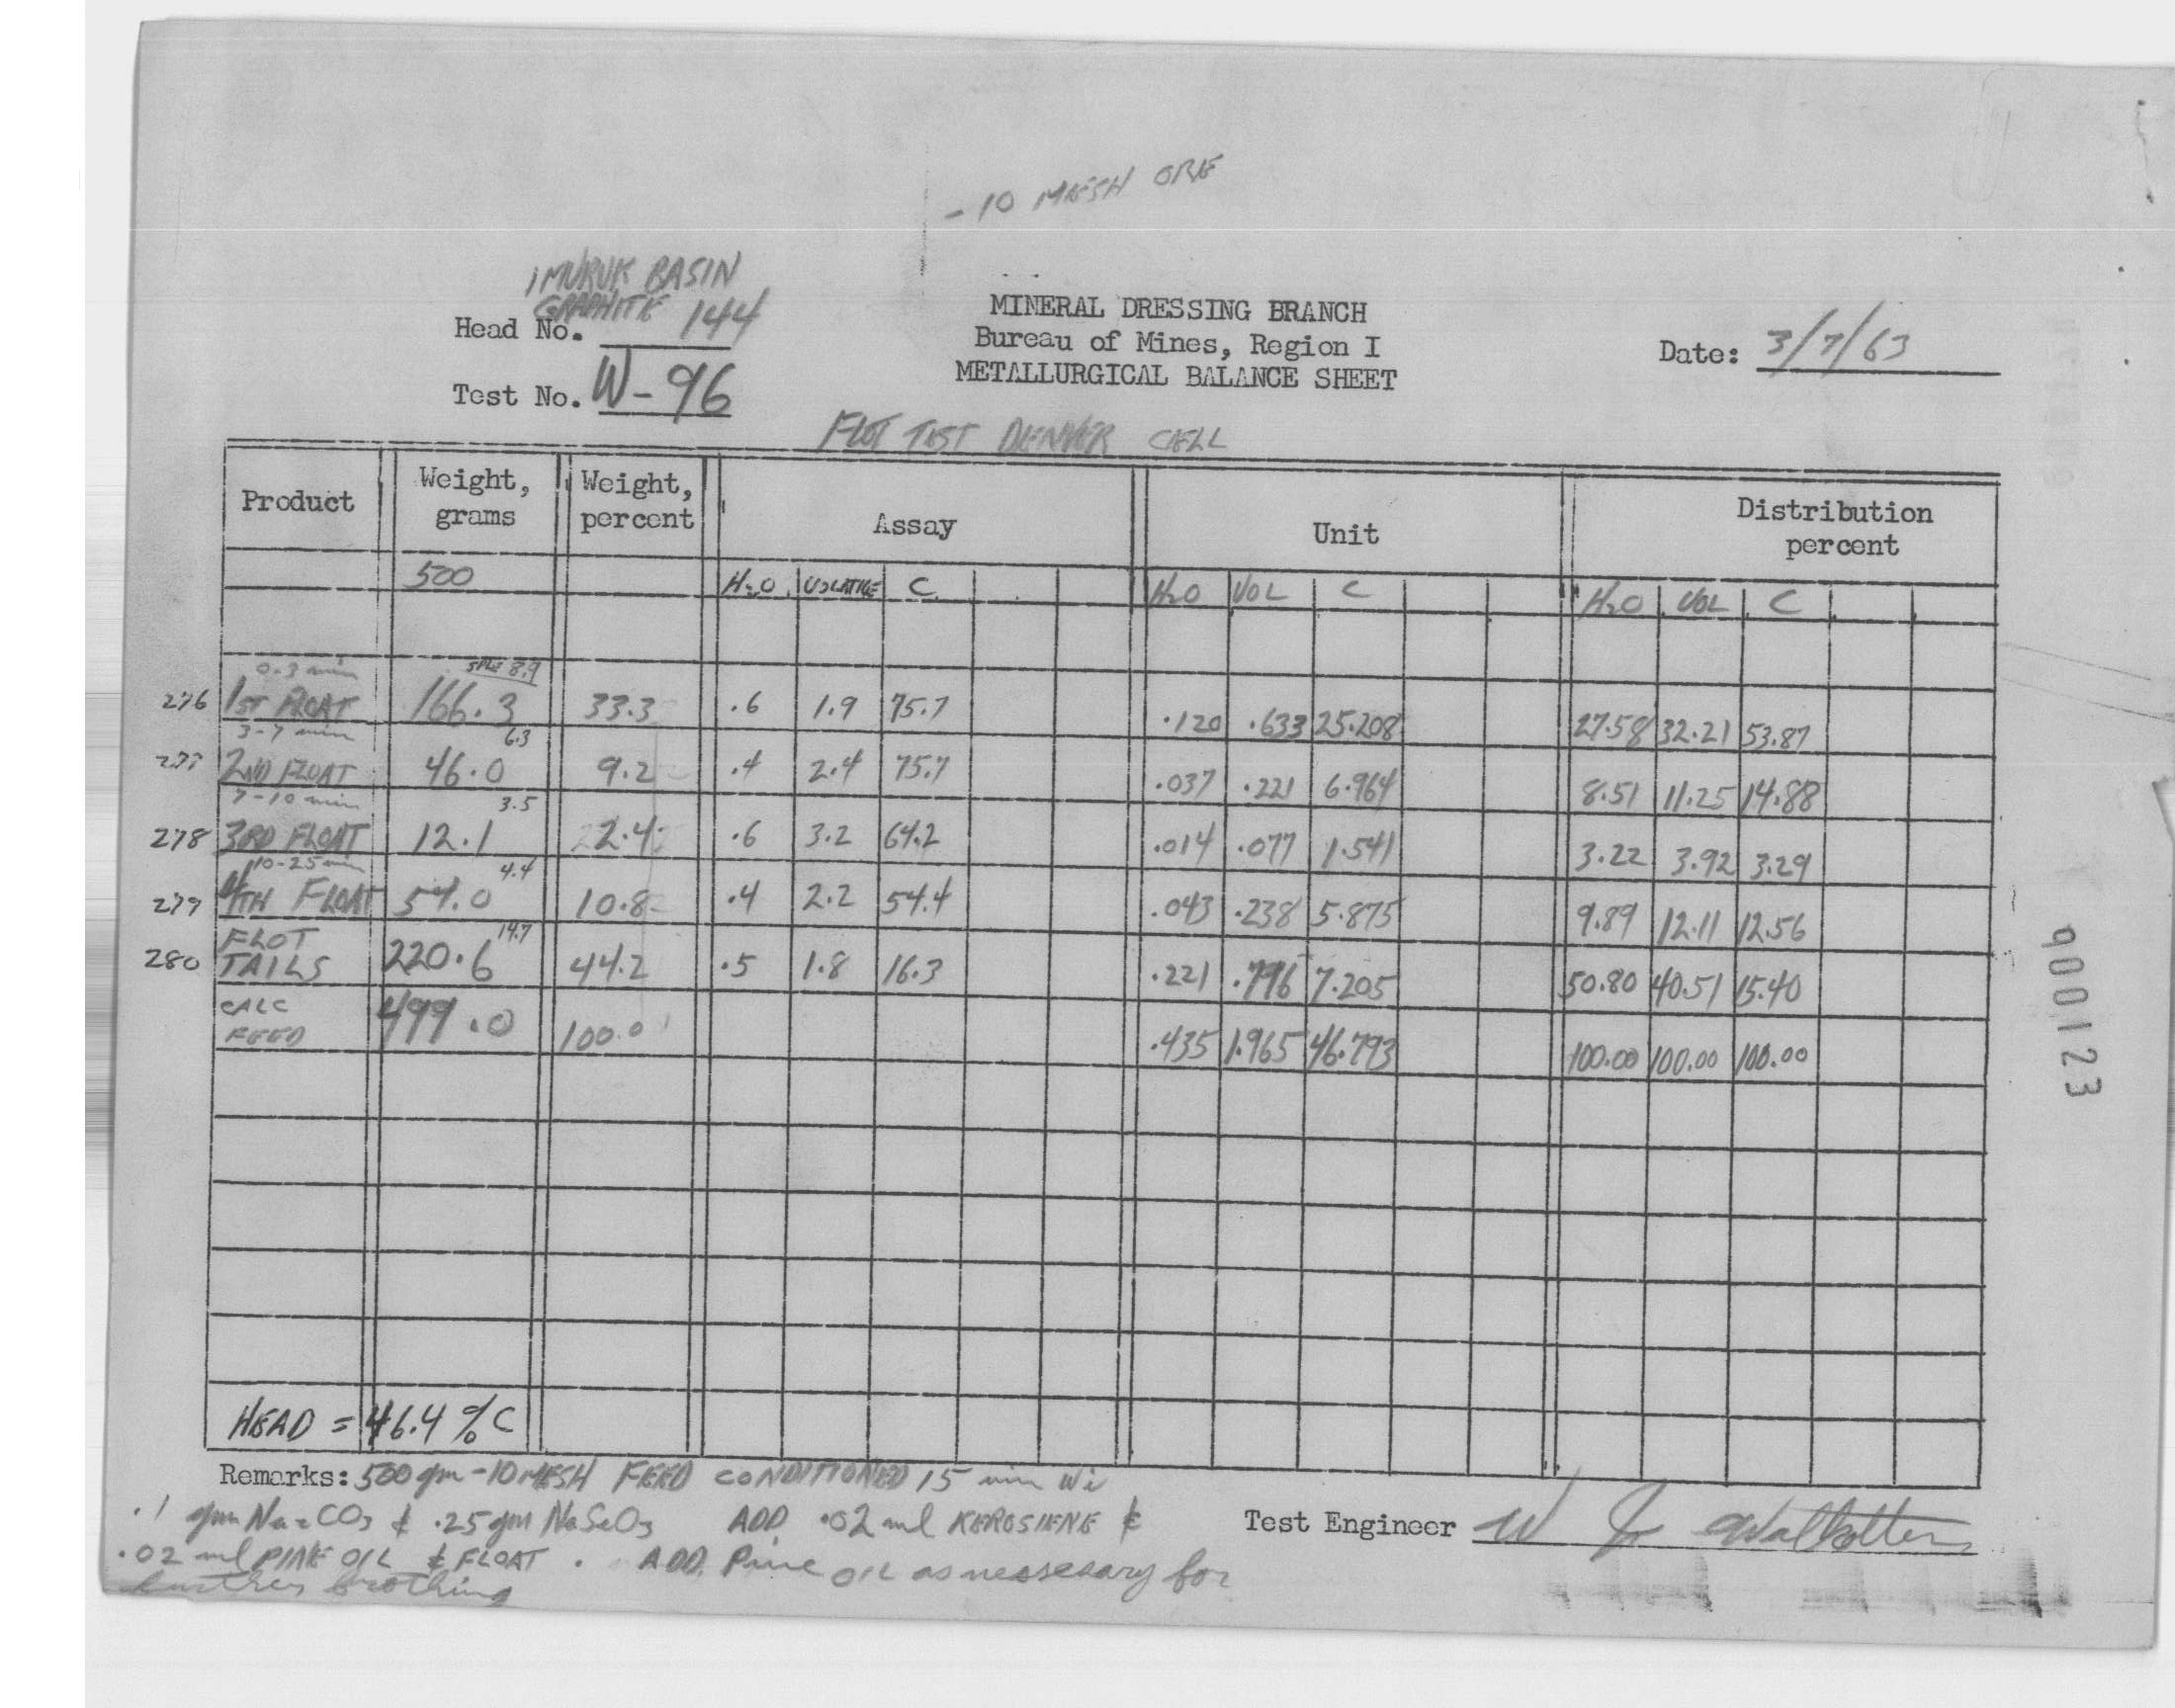 - 10 MESH ORE
IMURUK BASIN
GRAPHITE
Head No. 144
Test No. W-96
MINERAL DRESSING BRANCH
Bureau of Mines, Region I
METALLURGICAL BALANCE SHEET
Date: 3/7/63
FLOT TEST DENVER CELL
Product Weight, grams Weight, percent Assay Unit Distribution percent
500 H2O VOLATILE C H2O VOL C H2O VOL C
0-3 min SPLE 8.9
276 1ST FLOAT 166.3 33.3 .6 1.9 75.7 .120 .633 25.208 27.58 32.21 53.87
3-7 min 6.3
277 2ND FLOAT 46.0 9.2 .4 2.4 75.7 .037 .221 6.964 8.51 11.25 14.88
7-10 min 3.5
278 3RD FLOAT 12.1 2.4 .6 3.2 64.2 .014 .077 1.541 3.22 3.92 3.29
10-25 min 4.4
279 4TH FLOAT 54.0 10.8 .4 2.2 54.4 .043 .238 5.875 9.89 12.11 12.56
14.7
280 FLOT TAILS 220.6 44.2 .5 1.8 16.3 .221 .796 7.205 50.80 40.51 15.40
CALC FEED 499.0 100.0 .435 1.965 46.793 100.00 100.00 100.00
HEAD = 46.4 % C
Remarks: 500 gm -10 MESH FEED CONDITIONED 15 min Wi
.1 gm Na2CO3 & .25 gm NaSeO3 ADD .02 ml KEROSIENE &
.02 ml PINE OIL & FLOAT . ADD Pine OIL as nessesary for
further frothing
Test Engineer W
900123